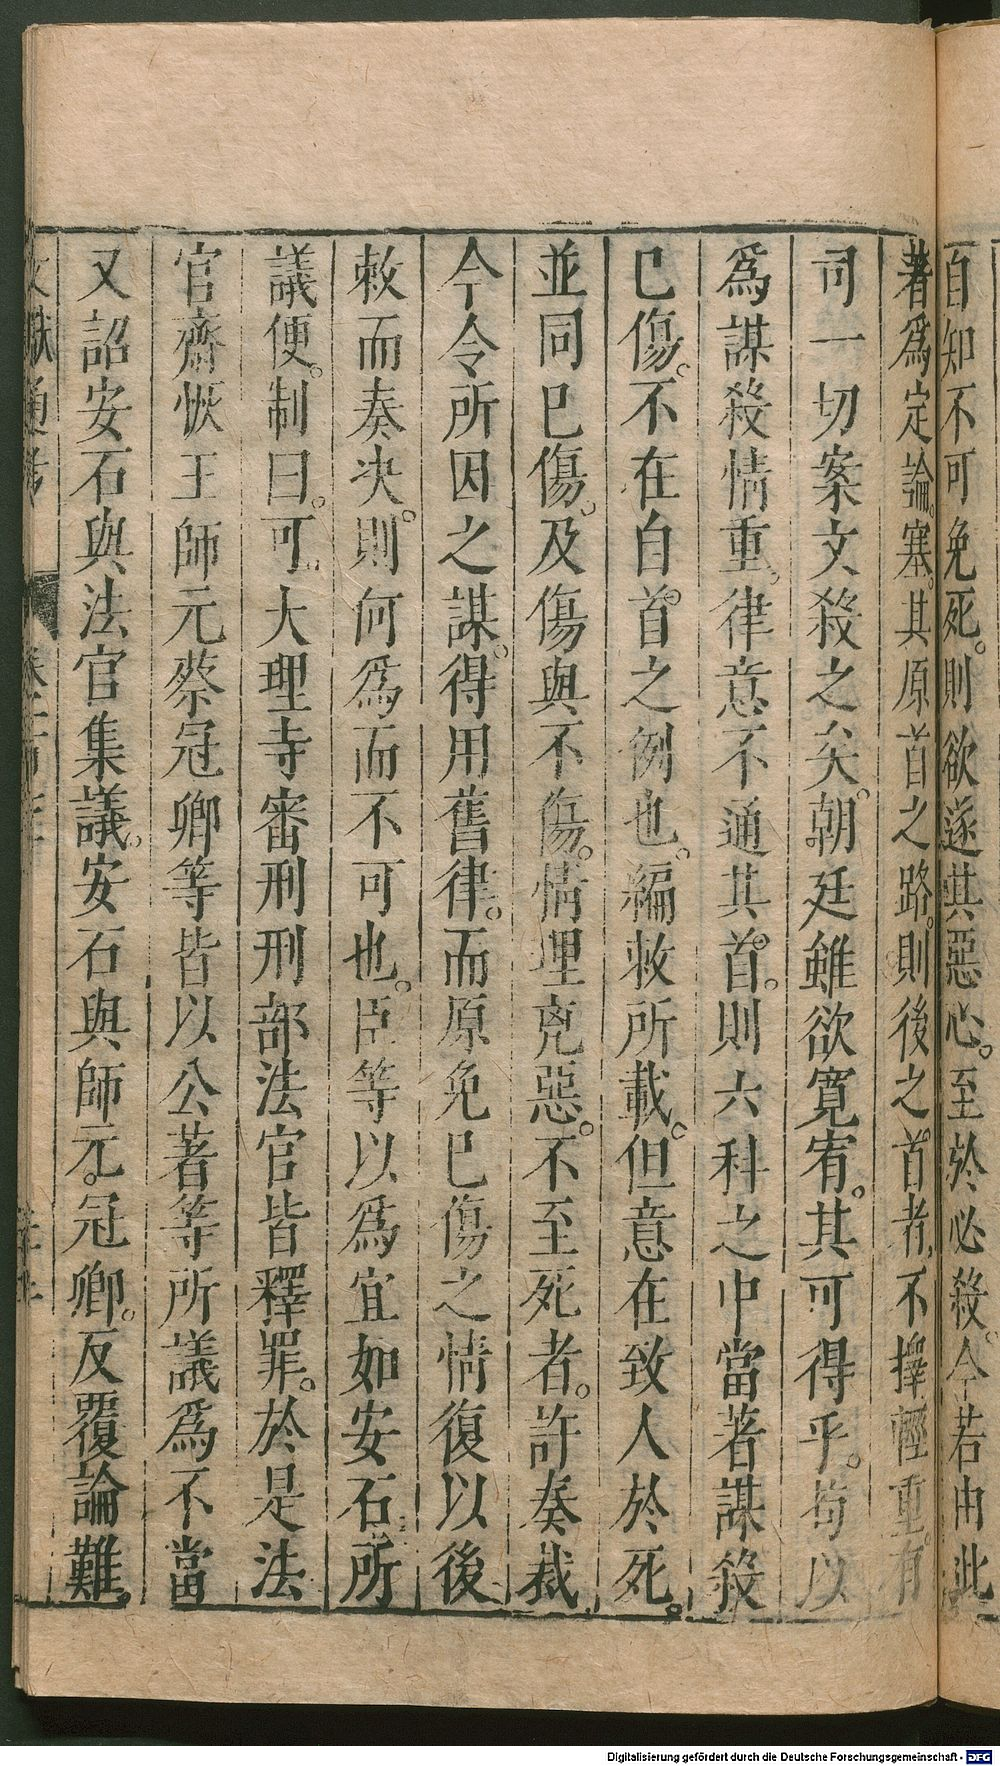 自知不可免死。則欲遂其惡心。至於必殺。今若由此
著爲定論。塞其原首之路。則後之首者,不擇輕重。有
司一切案文殺之矣。朝廷雖欲寬宥。其可得乎。苟以
爲謀殺情重。律意不通其首。則六科之中當著謀殺
已傷。不在自首之例也。編敕所載。但意在致人於死。
並同已傷。及傷與不傷。情理兇惡。不至死者。許奏裁
今令所因之謀。得用舊律。而原免已傷之情復以後
敕而奏决。則何爲而不可也。臣等以爲宜如安石所
議便。制曰。可。大理寺審刑刑部法官皆釋罪。於是法
官齊恢王師元蔡冠卿等皆以公著等所議爲不當
又詔安石與法官集議。安石與師元。冠卿。反覆論難。
文獻通考
Digitalisierung gefördert durch die Deutsche Forschungsgemeinschaft - DFG